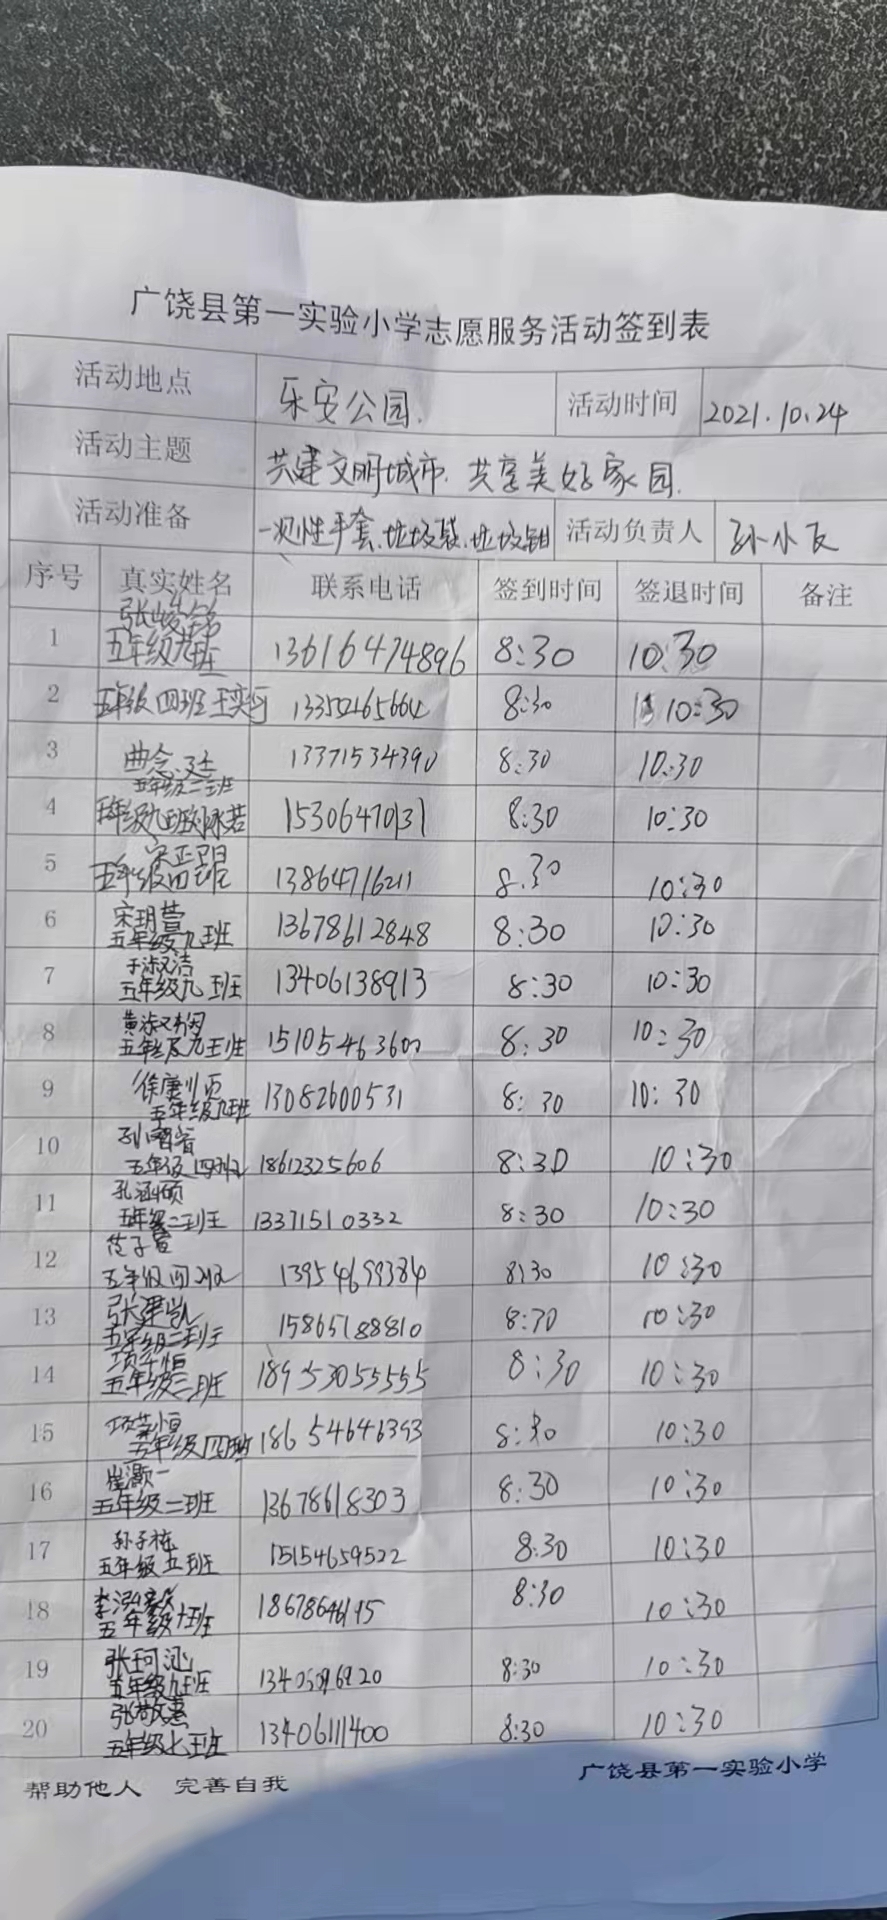 广饶县第一实验小学志愿服务活动签到表
活动地点 乐安公园. 活动时间 2021.10.24
活动主题 共建文明城市. 共享美好家园.
活动准备 一次性手套、垃圾袋、垃圾钳 活动负责人 孙小友
序号 真实姓名 联系电话 签到时间 签退时间 备注
张峻铭
1 五年级九班 13616474896 8:30 10:30
2 五年级四班王奕 8:30 10:30
3 曲令 13371534390 8:30 10:30
五年级二班
4 五年级九班刘 15306470131 8:30 10:30
宋正
5 五年级四班 13864716211 8.30 10:30
6 宋玥萱 13678612848 8:30 10:30
五年级九班
7 于淑洁 13406138913 8:30 10:30
五年级九班
8 黄淑 8:30 10:30
五年级九班
9 徐康顺 13082600531 8:30 10:30
五年级九班
10 孙
五年级四班 18612325606 8:30 10:30
11 孔涵硕
五年级二班 13371510332 8:30 10:30
12 范子萱
五年级四班 13954699384 8:30 10:30
13 张建凯 15865188810 8:30 10:30
五年级二班
14 项 恒
五年级三班 18953055555 8:30 10:30
15 项荣恒
五年级四班 18654646393 8:30 10:30
16 崔灏一
五年级二班 13678618303 8:30 10:30
17 孙子栋
五年级五班 15154659522 8:30 10:30
18 李泓毅 8:30
五年级十班 10:30
19 张珂
五年级九班 8:30 10:30
20 张敬惠
五年级七班 13406111400 8:30 10:30
帮助他人 完善自我 广饶县第一实验小学